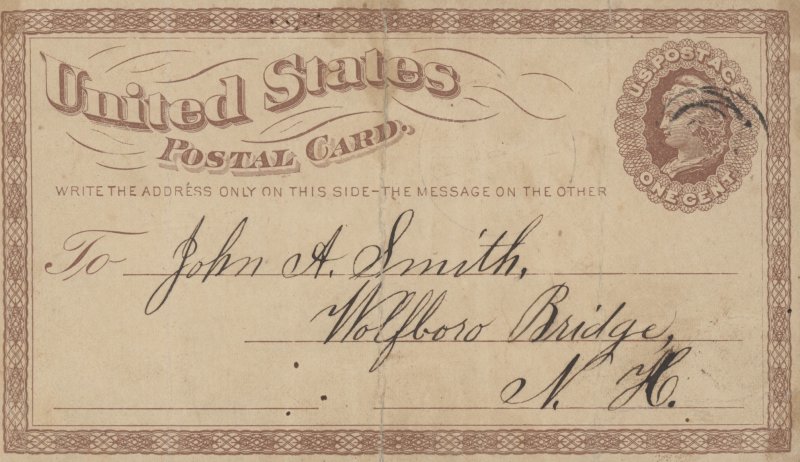 United States
POSTAL CARD.
U.S. POSTAGE
ONE CENT
WRITE THE ADDRESS ONLY ON THIS SIDE-THE MESSAGE ON THE OTHER
To John A. Smith,
Wolfboro Bridge,
N. H.